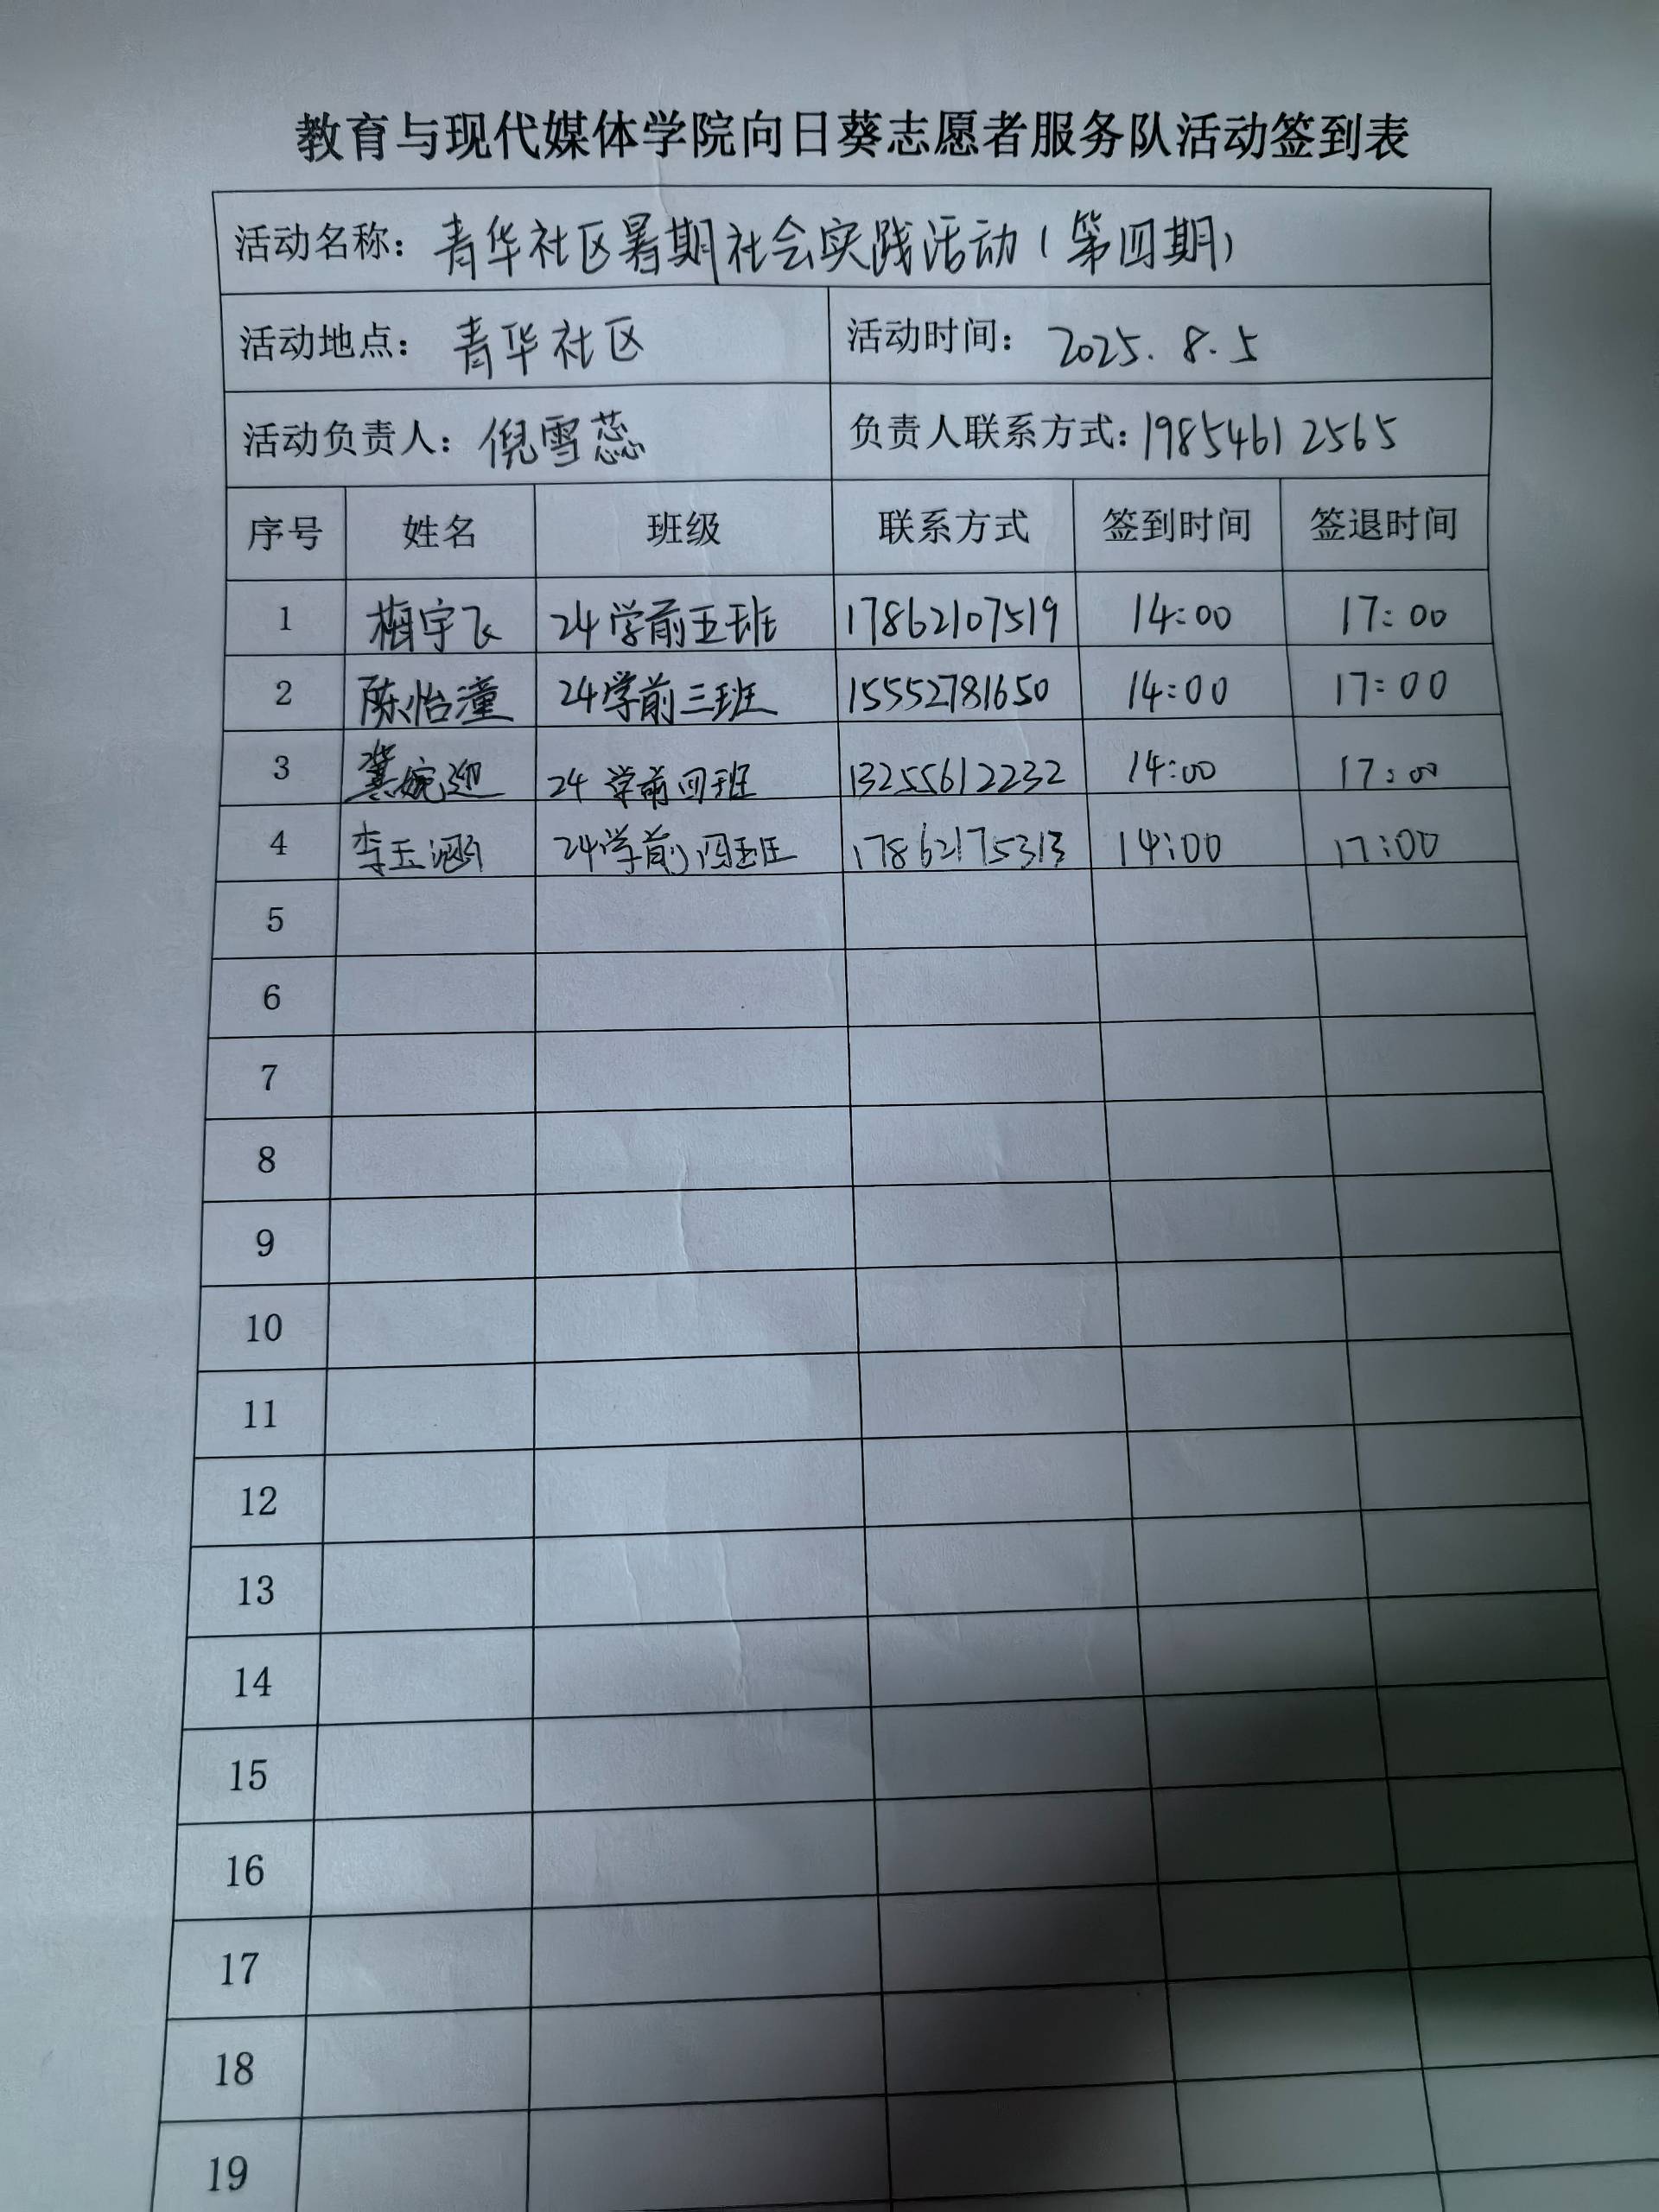 教育与现代媒体学院向日葵志愿者服务队活动签到表
活动名称: 青华社区暑期社会实践活动(第四期)
活动地点: 青华社区 活动时间: 2025.8.5
活动负责人: 倪雪蕊 负责人联系方式: 19854612565
序号 姓名 班级 联系方式 签到时间 签退时间
1 梅宇飞 24学前五班 17862107519 14:00 17:00
2 陈怡潼 24学前三班 15552781650 14:00 17:00
3 龚婉迎 24学前四班 13255612232 14:00 17:00
4 李玉涵 24学前 班 17862175313 14:00 17:00
5
6
7
8
9
10
11
12
13
14
15
16
17
18
19